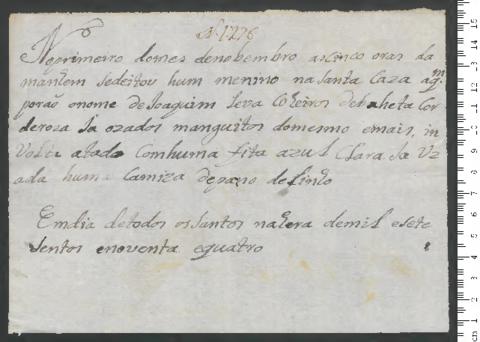 N 1276
No primeiro do mes de nobembro as sinco oras da
manhem se deitou hum menino na Santa Caza a q.m
porão o nome de Joaquim leva Coieiros de baheta Cor
de roza Ja ozados manguitos do mesmo e mais, in
Volta atado Com huma fita azul Clara Ja Uz
ada huma Camiza de pano de linho
Em dia de todos os Santos na hera de mil e sete
Sentos e noventa e quatro